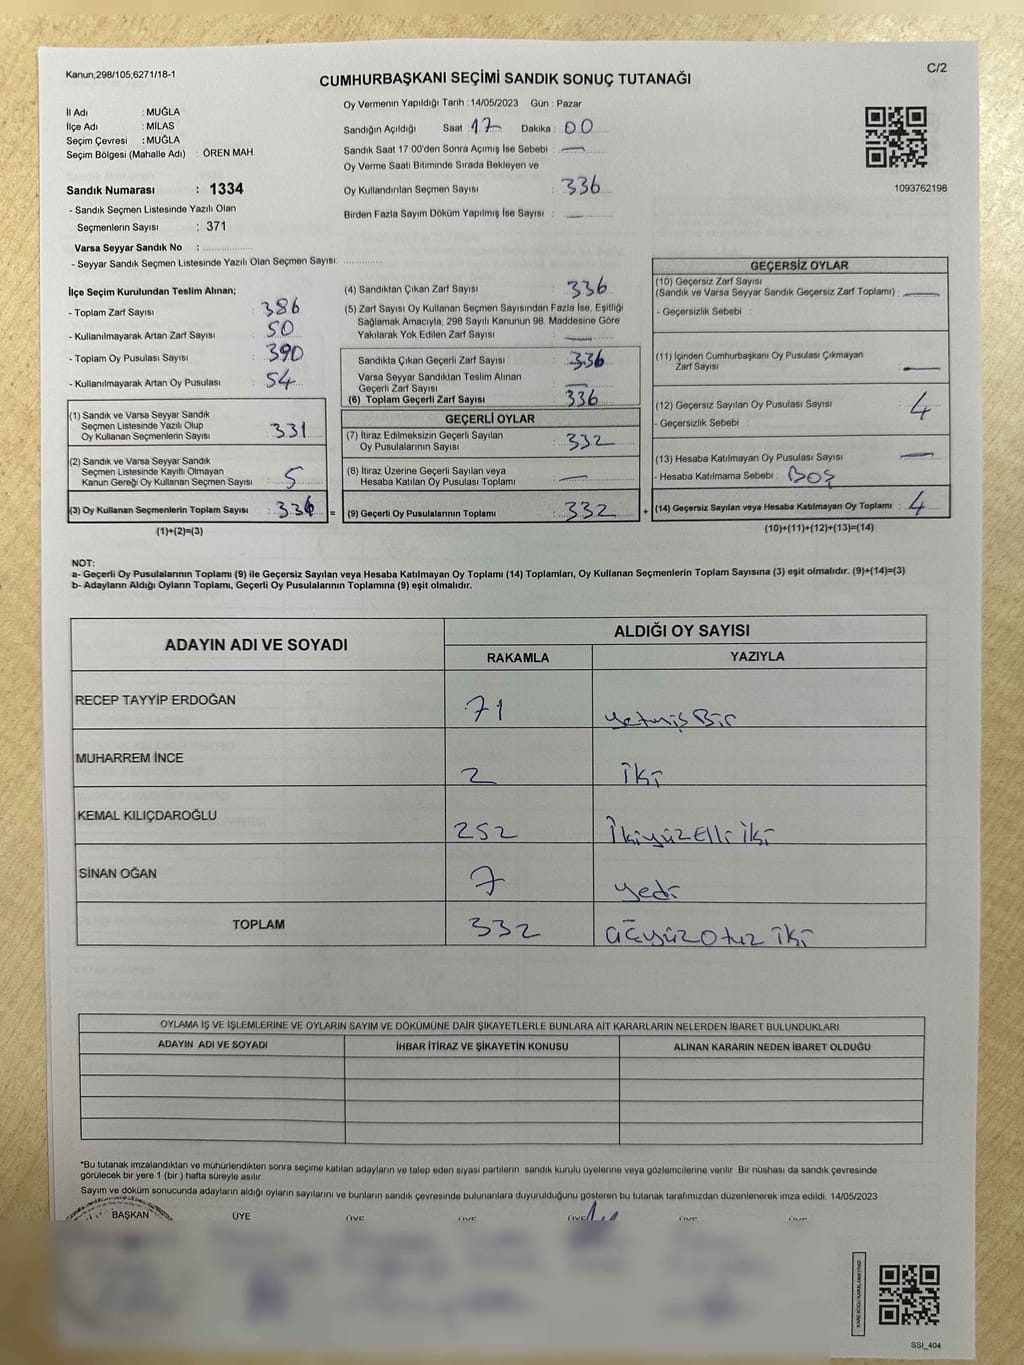 Kanun,298/105,6271/18-1
C/2
CUMHURBAŞKANI SEÇİMİ SANDIK SONUÇ TUTANAĞI
İl Adı : MUĞLA
İlçe Adı : MİLAS
Seçim Çevresi : MUĞLA
Seçim Bölgesi (Mahalle Adı) : ÖREN MAH.
Sandık Numarası : 1334
- Sandık Seçmen Listesinde Yazılı Olan
Seçmenlerin Sayısı : 371
Varsa Seyyar Sandık No :
- Seyyar Sandık Seçmen Listesinde Yazılı Olan Seçmen Sayısı:
Oy Vermenin Yapıldığı Tarih : 14/05/2023 Gün : Pazar
Sandığın Açıldığı Saat : 17 Dakika : 00
Sandık Saat 17:00'den Sonra Açılmış İse Sebebi : —
Oy Verme Saati Bitiminde Sırada Bekleyen ve
Oy Kullandırılan Seçmen Sayısı : 336
Birden Fazla Sayım Döküm Yapılmış İse Sayısı : —
1093762198
İlçe Seçim Kurulundan Teslim Alınan;
- Toplam Zarf Sayısı : 386
- Kullanılmayarak Artan Zarf Sayısı : 50
- Toplam Oy Pusulası Sayısı : 390
- Kullanılmayarak Artan Oy Pusulası : 54
(1) Sandık ve Varsa Seyyar Sandık
Seçmen Listesinde Yazılı Olup
Oy Kullanan Seçmenlerin Sayısı : 331
(2) Sandık ve Varsa Seyyar Sandık
Seçmen Listesinde Kayıtlı Olmayan
Kanun Gereği Oy Kullanan Seçmen Sayısı : 5
(3) Oy Kullanan Seçmenlerin Toplam Sayısı : 336 =
(1)+(2)=(3)
(4) Sandıktan Çıkan Zarf Sayısı : 336
(5) Zarf Sayısı Oy Kullanan Seçmen Sayısından Fazla İse, Eşitliği
Sağlamak Amacıyla, 298 Sayılı Kanunun 98. Maddesine Göre
Yakılarak Yok Edilen Zarf Sayısı : —
Sandıkta Çıkan Geçerli Zarf Sayısı : 336
Varsa Seyyar Sandıktan Teslim Alınan
Geçerli Zarf Sayısı : —
(6) Toplam Geçerli Zarf Sayısı : 336
GEÇERLİ OYLAR
(7) İtiraz Edilmeksizin Geçerli Sayılan
Oy Pusulalarının Sayısı : 332
(8) İtiraz Üzerine Geçerli Sayılan veya
Hesaba Katılan Oy Pusulası Toplamı : —
(9) Geçerli Oy Pusulalarının Toplamı : 332 +
GEÇERSİZ OYLAR
(10) Geçersiz Zarf Sayısı
(Sandık ve Varsa Seyyar Sandık Geçersiz Zarf Toplamı) : —
- Geçersizlik Sebebi :
(11) İçinden Cumhurbaşkanı Oy Pusulası Çıkmayan
Zarf Sayısı : —
(12) Geçersiz Sayılan Oy Pusulası Sayısı : 4
- Geçersizlik Sebebi :
(13) Hesaba Katılmayan Oy Pusulası Sayısı : —
- Hesaba Katılmama Sebebi : Boş
(14) Geçersiz Sayılan veya Hesaba Katılmayan Oy Toplamı : 4
(10)+(11)+(12)+(13)=(14)
NOT:
a- Geçerli Oy Pusulalarının Toplamı (9) ile Geçersiz Sayılan veya Hesaba Katılmayan Oy Toplamı (14) Toplamları, Oy Kullanan Seçmenlerin Toplam Sayısına (3) eşit olmalıdır. (9)+(14)=(3)
b- Adayların Aldığı Oyların Toplamı, Geçerli Oy Pusulalarının Toplamına (9) eşit olmalıdır.
ADAYIN ADI VE SOYADI ALDIĞI OY SAYISI
RAKAMLA YAZIYLA
RECEP TAYYİP ERDOĞAN 71 yetmiş Bir
MUHARREM İNCE 2 iki
KEMAL KILIÇDAROĞLU 252 İkiyüz Elli iki
SİNAN OĞAN 7 yedi
TOPLAM 332 üçyüz otuz iki
OYLAMA İŞ VE İŞLEMLERİNE VE OYLARIN SAYIM VE DÖKÜMÜNE DAİR ŞİKAYETLERLE BUNLARA AİT KARARLARIN NELERDEN İBARET BULUNDUKLARI
ADAYIN ADI VE SOYADI İHBAR İTİRAZ VE ŞİKAYETİN KONUSU ALINAN KARARIN NEDEN İBARET OLDUĞU
*Bu tutanak imzalandıktan ve mühürlendikten sonra seçime katılan adayların ve talep eden siyasi partilerin sandık kurulu üyelerine veya gözlemcilerine verilir. Bir nüshası da sandık çevresinde
görülecek bir yere 1 (bir) hafta süreyle asılır.
Sayım ve döküm sonucunda adayların aldığı oyların sayılarını ve bunların sandık çevresinde bulunanlara duyurulduğunu gösteren bu tutanak tarafımızdan düzenlenerek imza edildi. 14/05/2023
BAŞKAN ÜYE ÜYE ÜYE ÜYE ÜYE ÜYE
KARE KODU KARALAMAYINIZ!
SSI_404